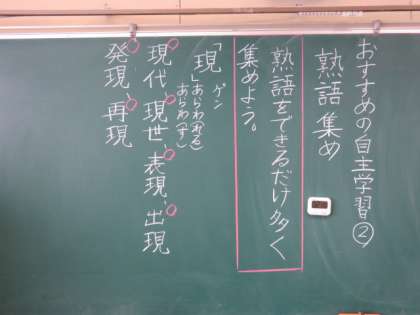 おすすめの自主学習②
熟語集め
熟語をできるだけ多く
集めよう。
「現」ゲン
あらわ(れる)
あらわ(す)
現代、現世、表現、出現
発現、再現